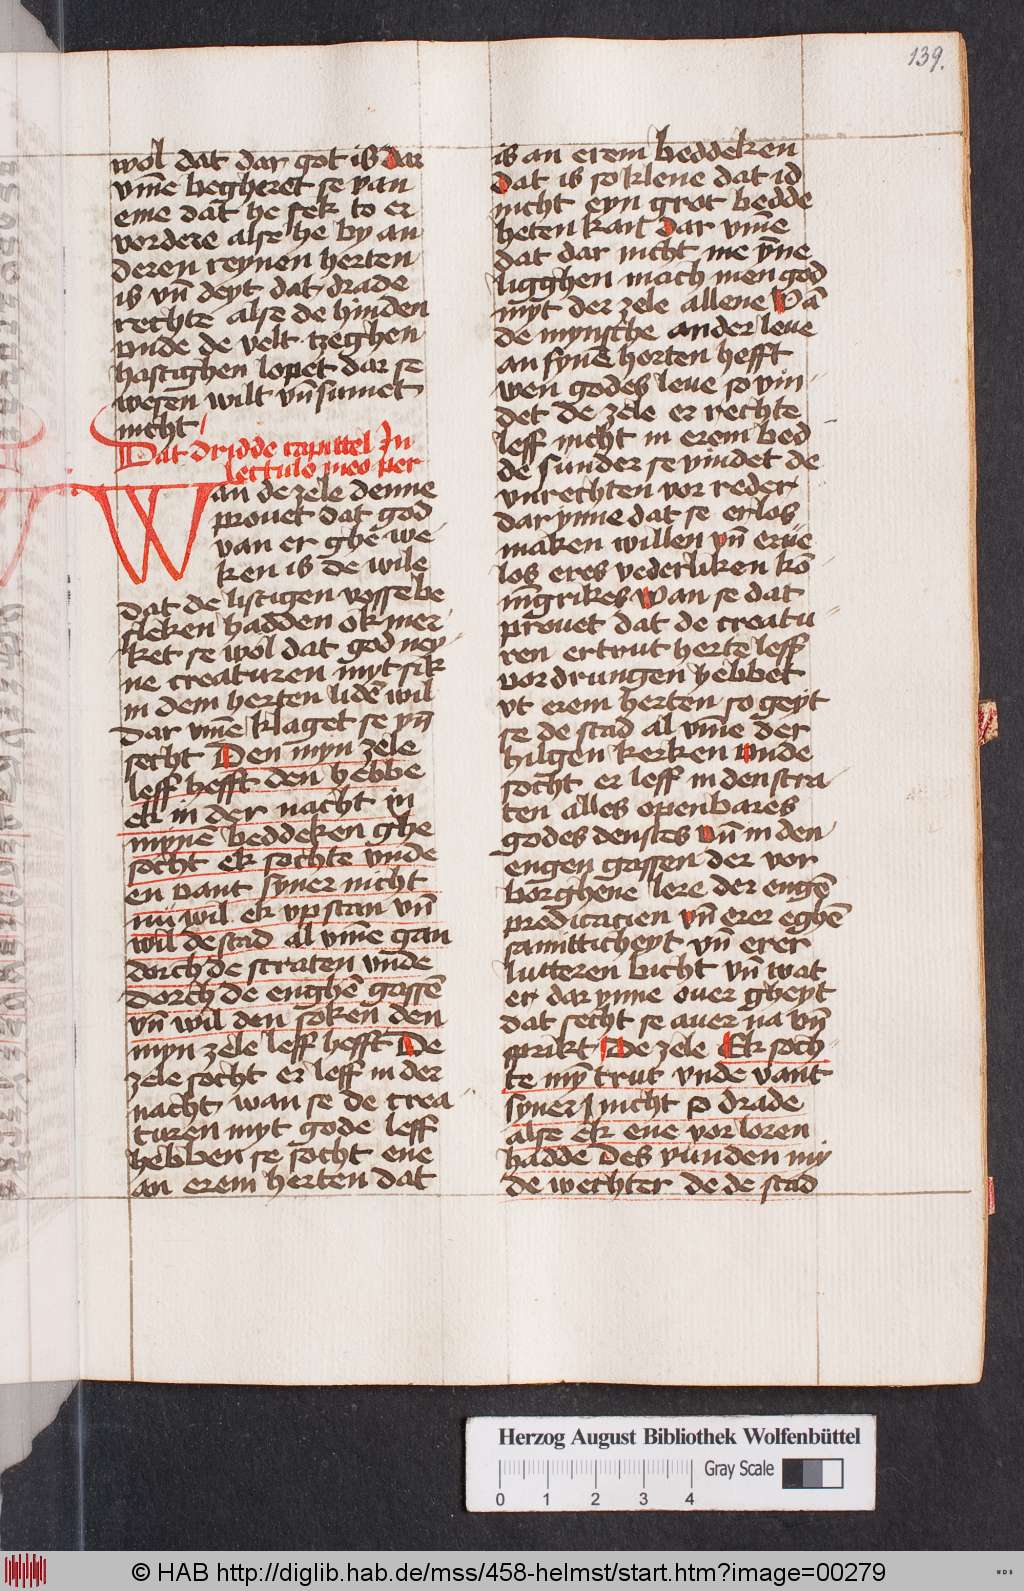 139.
wol dat dar got is Dar
vm̄e begheret se van
eme dat he sek to er
vordere alse he by an
deren reynen herten
is vn̄ deyt dat drade
rechte alse de hinden
vnde de velt tzeghen
hastighen lopet dar se
wesen wilt vn̄ sumet
nicht
Dat dridde capittel In
lectulo meo per
Wan de zele denne
prouet dat god
van er ghe we
ken is De wile
dat de listigen vosse be
sleken hadden ok mer
ket se wol dat god ney
ne creaturen myt sik
in dem herten lidē wil
Dar vm̄e klaget se vn̄
secht Den myn zele
leff hefft den hebbe
ek in der nacht in
mynē beddeken ghe
socht ek sochte vnde
en vant syner nicht
nu wil ek vpstan vn̄
wil de stad al vm̄e gan
dorch de straten vnde
dorch de enghē gassē
vn̄ wil den soken den
myn zele leff hefft De
zele socht er leff in der
nacht wan se de crea
turen myt gode leff
hebben se socht ene
an erem herten dat
is an erem beddeken
Dat is so klene dat id
nicht eyn grot bedde
heten kan Dar vm̄e
dat dar nicht me ȳne
ligghen mach men god
myt der zele allene Vā
de mynsche ander leue
an synē herten hefft
wen godes leue so vin
det de zele er rechte
leff nicht in erem bed
de sunder se vindet de
vnrechten vor reder
dar ynne dat se erlos
maken willen vn̄ erue
los eres vederliken kō
nīgrikes Wan se dat
prouet dat de creatu
ren ertrut herte leff
vordrungen hebbet
vt erem herten so geyt
se de stad al vm̄e der
hilgen kerken vnde
socht er leff in den stra
ten alles openbares
godes denstes vn̄ in den
engen gassen der vor
borghene lere der engē
predicacien vn̄ erer eghē
samitticheyt vn̄ erer
lutteren bicht vn̄ wat
er dar ynne ouer gheyt
dat secht se auer na vn̄
sprikt De zele Ek soch
te mȳ trut vnde vant
syner nicht so drade
alse ek ene vorloren
hadde Des vunden my
de wechter de de stad
Herzog August Bibliothek Wolfenbüttel
Gray Scale
0 1 2 3 4
© HAB http://diglib.hab.de/mss/458-helmst/start.htm?image=00279